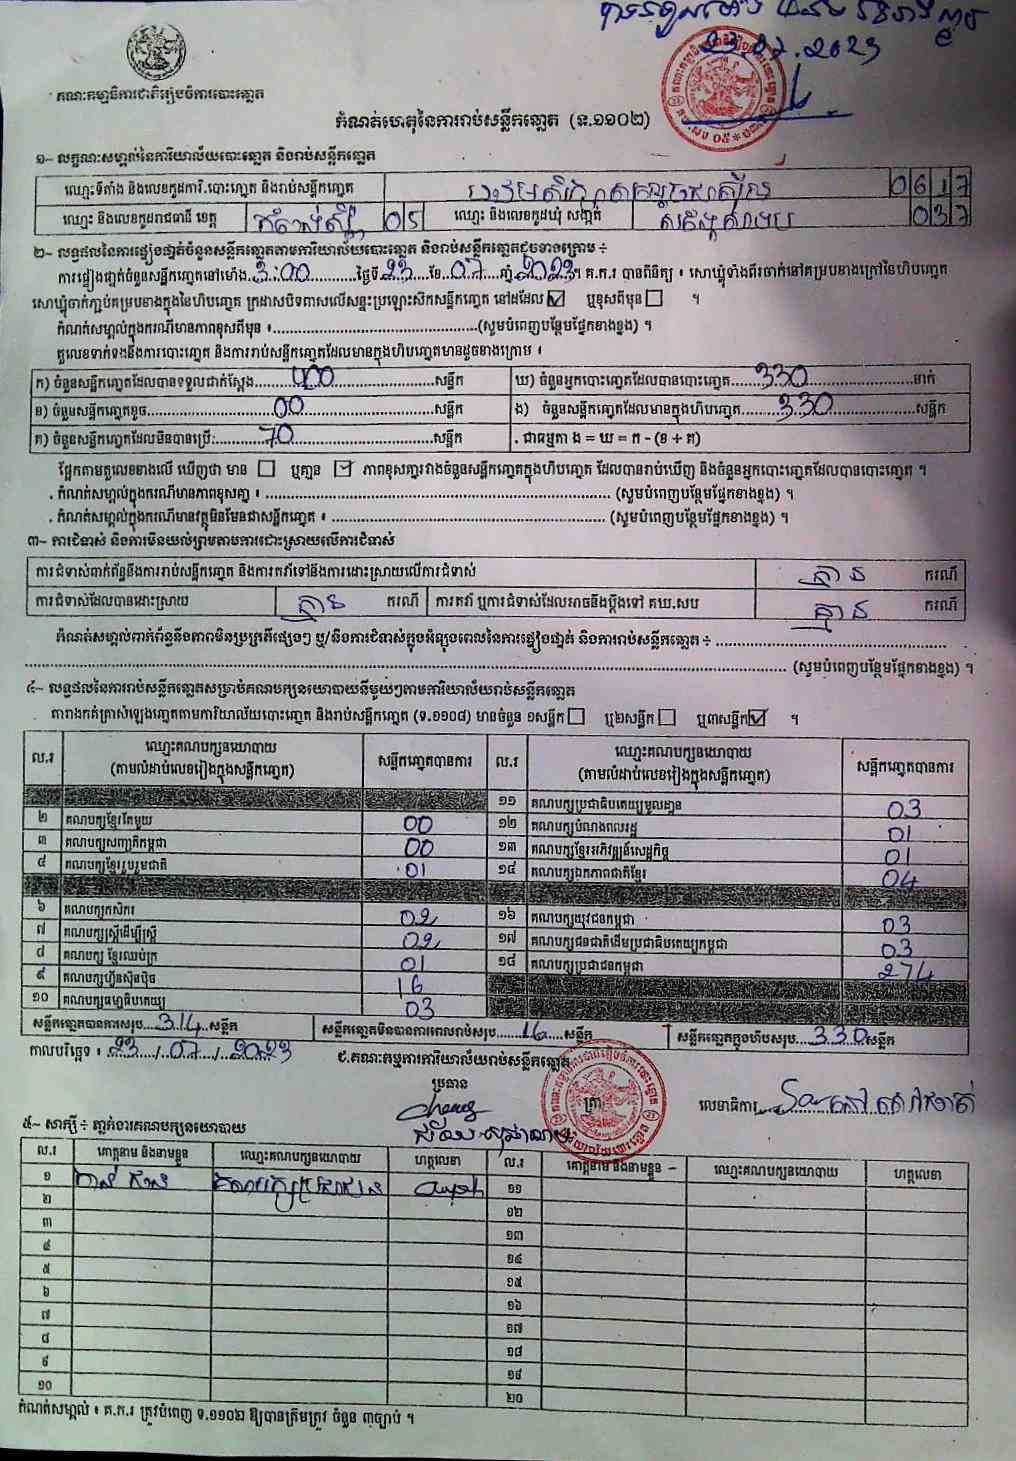 23.07.2023
គណៈកម្មាធិការជាតិរៀបចំការបោះឆ្នោត
កំណត់ហេតុនៃការរាប់សន្លឹកឆ្នោត (ទ.១១០២)
១~ លក្ខណៈសម្គាល់នៃការិយាល័យបោះឆ្នោត និងរាប់សន្លឹកឆ្នោត
ឈ្មោះទីតាំង និងលេខកូដការិ.បោះឆ្នោត និងរាប់សន្លឹកឆ្នោត 0617
ឈ្មោះ និងលេខកូដរាជធានី ខេត្ត កំពង់ស្ពឺ 05 ឈ្មោះ និងលេខកូដឃុំ សង្កាត់ 037
២~ លទ្ធផលនៃការផ្ទៀងផ្ទាត់ចំនួនសន្លឹកឆ្នោតតាមការិយាល័យបោះឆ្នោត និងរាប់សន្លឹកឆ្នោតដូចខាងក្រោម ÷
ការផ្ទៀងផ្ទាត់ចំនួនសន្លឹកឆ្នោតនៅម៉ោង 3:00 ថ្ងៃទី 23 ខែ 07 ឆ្នាំ 2023។ គ.ក.រ បានពិនិត្យ ៖ សោឃ្លុំទាំងពីរចាក់នៅគម្របខាងក្រៅនៃហិបឆ្នោត
សោឃ្លុំចាក់ភ្ជាប់គម្របខាងក្នុងនៃហិបឆ្នោត ក្រដាសបិទពាសលើសន្ទះប្រឡោះស៊កសន្លឹកឆ្នោត នៅដដែល ☑ ឬខុសពីមុន ☐ ។
កំណត់សម្គាល់ក្នុងករណីមានភាពខុសពីមុន ៖ (សូមបំពេញបន្ថែមផ្នែកខាងខ្នង) ។
តួលេខទាក់ទងនឹងការបោះឆ្នោត និងការរាប់សន្លឹកឆ្នោតដែលមានក្នុងហិបឆ្នោតមានដូចខាងក្រោម ៖
ក) ចំនួនសន្លឹកឆ្នោតដែលបានទទួលជាក់ស្តែង 400 សន្លឹក ឃ) ចំនួនអ្នកបោះឆ្នោតដែលបានបោះឆ្នោត 330 នាក់
ខ) ចំនួនសន្លឹកឆ្នោតខូច 00 សន្លឹក ង) ចំនួនសន្លឹកឆ្នោតដែលមានក្នុងហិបឆ្នោត 330 សន្លឹក
គ) ចំនួនសន្លឹកឆ្នោតដែលមិនបានប្រើ: 70 សន្លឹក . ជាធម្មតា ង = ឃ = ក - (ខ + គ)
ផ្អែកតាមតួលេខខាងលើ ឃើញថា មាន ☐ ឬគ្មាន ☑ ភាពខុសគ្នារវាងចំនួនសន្លឹកឆ្នោតក្នុងហិបឆ្នោត ដែលបានរាប់ឃើញ និងចំនួនអ្នកបោះឆ្នោតដែលបានបោះឆ្នោត ។
. កំណត់សម្គាល់ក្នុងករណីមានភាពខុសគ្នា ៖ (សូមបំពេញបន្ថែមផ្នែកខាងខ្នង) ។
. កំណត់សម្គាល់ក្នុងករណីមានវត្ថុមិនមែនជាសន្លឹកឆ្នោត ៖ (សូមបំពេញបន្ថែមផ្នែកខាងខ្នង) ។
៣~ ការជំទាស់ និងការមិនយល់ព្រមតាមការដោះស្រាយលើការជំទាស់
ការជំទាស់ពាក់ព័ន្ធនឹងការរាប់សន្លឹកឆ្នោត និងការតវ៉ាទៅនឹងការដោះស្រាយលើការជំទាស់ គ្មាន ករណី
ការជំទាស់ដែលបានដោះស្រាយ គ្មាន ករណី ការតវ៉ា ឬការជំទាស់ដែលអាចនឹងប្តឹងទៅ គឃ.សប គ្មាន ករណី
កំណត់សម្គាល់ពាក់ព័ន្ធនឹងភាពមិនប្រក្រតីផ្សេងៗ ឬ/និងការជំទាស់ក្នុងអំឡុងពេលនៃការផ្ទៀងផ្ទាត់ និងការរាប់សន្លឹកឆ្នោត ÷
(សូមបំពេញបន្ថែមផ្នែកខាងខ្នង) ។
៤~ លទ្ធផលនៃការរាប់សន្លឹកឆ្នោតសម្រាប់គណបក្សនយោបាយនីមួយៗតាមការិយាល័យរាប់សន្លឹកឆ្នោត
តារាងកត់ត្រាសំឡេងឆ្នោតតាមការិយាល័យបោះឆ្នោត និងរាប់សន្លឹកឆ្នោត (ទ.១១០៨) មានចំនួន ១សន្លឹក ☐ ឬ២សន្លឹក ☐ ឬ៣សន្លឹក ☑ ។
ល.រ ឈ្មោះគណបក្សនយោបាយ (តាមលំដាប់លេខរៀងក្នុងសន្លឹកឆ្នោត) សន្លឹកឆ្នោតបានការ ល.រ ឈ្មោះគណបក្សនយោបាយ (តាមលំដាប់លេខរៀងក្នុងសន្លឹកឆ្នោត) សន្លឹកឆ្នោតបានការ
១១ គណបក្សប្រជាធិបតេយ្យមូលដ្ឋាន 03
២ គណបក្សខ្មែរតែមួយ 00 ១២ គណបក្សបំណងពលរដ្ឋ 01
៣ គណបក្សសញ្ជាតិកម្ពុជា 00 ១៣ គណបក្សខ្មែរអភិវឌ្ឍន៍សេដ្ឋកិច្ច 01
៤ គណបក្សខ្មែររួបរួមជាតិ 01 ១៤ គណបក្សឯកភាពជាតិខ្មែរ 04
៦ គណបក្សកសិករ 02 ១៦ គណបក្សយុវជនកម្ពុជា 03
៧ គណបក្សស្ត្រីដើម្បីស្ត្រី 02 ១៧ គណបក្សជនជាតិដើមប្រជាធិបតេយ្យកម្ពុជា 03
៨ គណបក្ស ខ្មែរឈប់ក្រ 01 ១៨ គណបក្សប្រជាជនកម្ពុជា 274
៩ គណបក្សហ៊្វុនស៊ិនប៉ិច 16
១០ គណបក្សធម្មាធិបតេយ្យ 03
សន្លឹកឆ្នោតបានការសរុប 314 សន្លឹក សន្លឹកឆ្នោតមិនបានការពេលរាប់សរុប 16 សន្លឹក សន្លឹកឆ្នោតក្នុងហិបសរុប 330 សន្លឹក
កាលបរិច្ឆេទ ៖ 23/07/2023 ជ.គណៈកម្មការការិយាល័យរាប់សន្លឹកឆ្នោត
ប្រធាន ត្រា លេខាធិការ
៥~ សាក្សី ÷ ភ្នាក់ងារគណបក្សនយោបាយ
ល.រ គោត្តនាម និងនាមខ្លួន ឈ្មោះគណបក្សនយោបាយ ហត្ថលេខា ល.រ គោត្តនាម និងនាមខ្លួន ឈ្មោះគណបក្សនយោបាយ ហត្ថលេខា
១ គណបក្សប្រជាជន ១១
២ ១២
៣ ១៣
៤ ១៤
៥ ១៥
៦ ១៦
៧ ១៧
៨ ១៨
៩ ១៩
១០ ២០
កំណត់សម្គាល់ ៖ គ.ក.រ ត្រូវបំពេញ ទ.១១០២ ឱ្យបានត្រឹមត្រូវ ចំនួន ៣ច្បាប់ ។